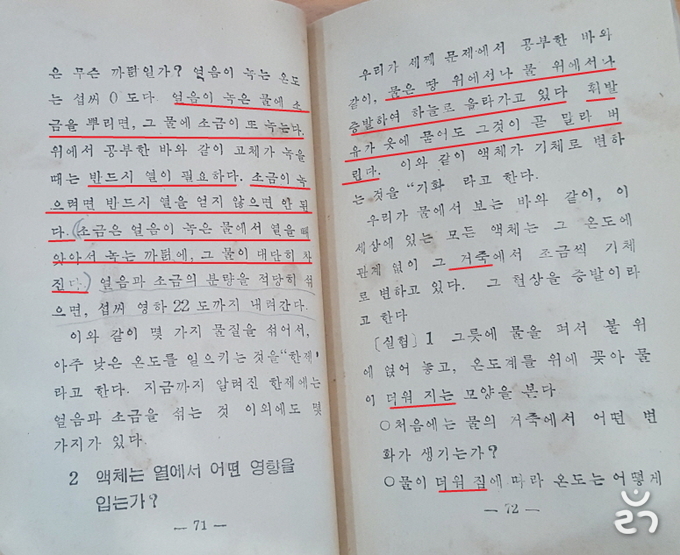 은 무슨 까닭일가? 얼음이 녹는 온도
는 섭씨 0°도다. 얼음이 녹은 물에 소
금을 뿌리면, 그 물에 소금이 또 녹는다.
위에서 공부한 바와 같이 고체가 녹을
때는 반드시 열이 필요하다. 소금이 녹
으려면 반드시 열을 얻지 않으면 안 된
다. (소금은 얼음이 녹은 물에서 열을 빼
앗아서 녹는 까닭에, 그 물이 대단히 차
진다.) 얼음과 소금의 분량을 적당히 섞
으면, 섭씨 영하 22 도까지 내려간다.
이와 같이 몇 가지 물질을 섞어서,
아주 낮은 온도를 일으키는 것을 “한제”
라고 한다. 지금까지 알려진 한제에는
얼음과 소금을 섞는 것 이외에도 몇
가지가 있다.
2 액체는 열에서 어떤 영향을
입는가?
— 71 —
우리가 세째 문제에서 공부한 바와
같이, 물은 땅 위에서나 물 위에서나
증발하여 하늘로 올라가고 있다 휘발
유가 옷에 묻어도 그것이 곧 말라 버
린다. 이와 같이 액체가 기체로 변하
는 것을 “기화 라고 한다.
우리가 물에서 보는 바와 같이, 이
세상에 있는 모든 액체는 그 온도에
관계 없이 그 거죽에서 조금씩 기체
로 변하고 있다. 그 현상을 증발이라
고 한다
[실험] 1 그릇에 물을 퍼서 불 위
에 얹어 놓고, 온도계를 위에 꽂아 물
이 더워 지는 모양을 본다
○처음에는 물의 거죽에서 어떤 변
화가 생기는가?
○물이 더워 짐에 따라 온도는 어떻게
— 72 —